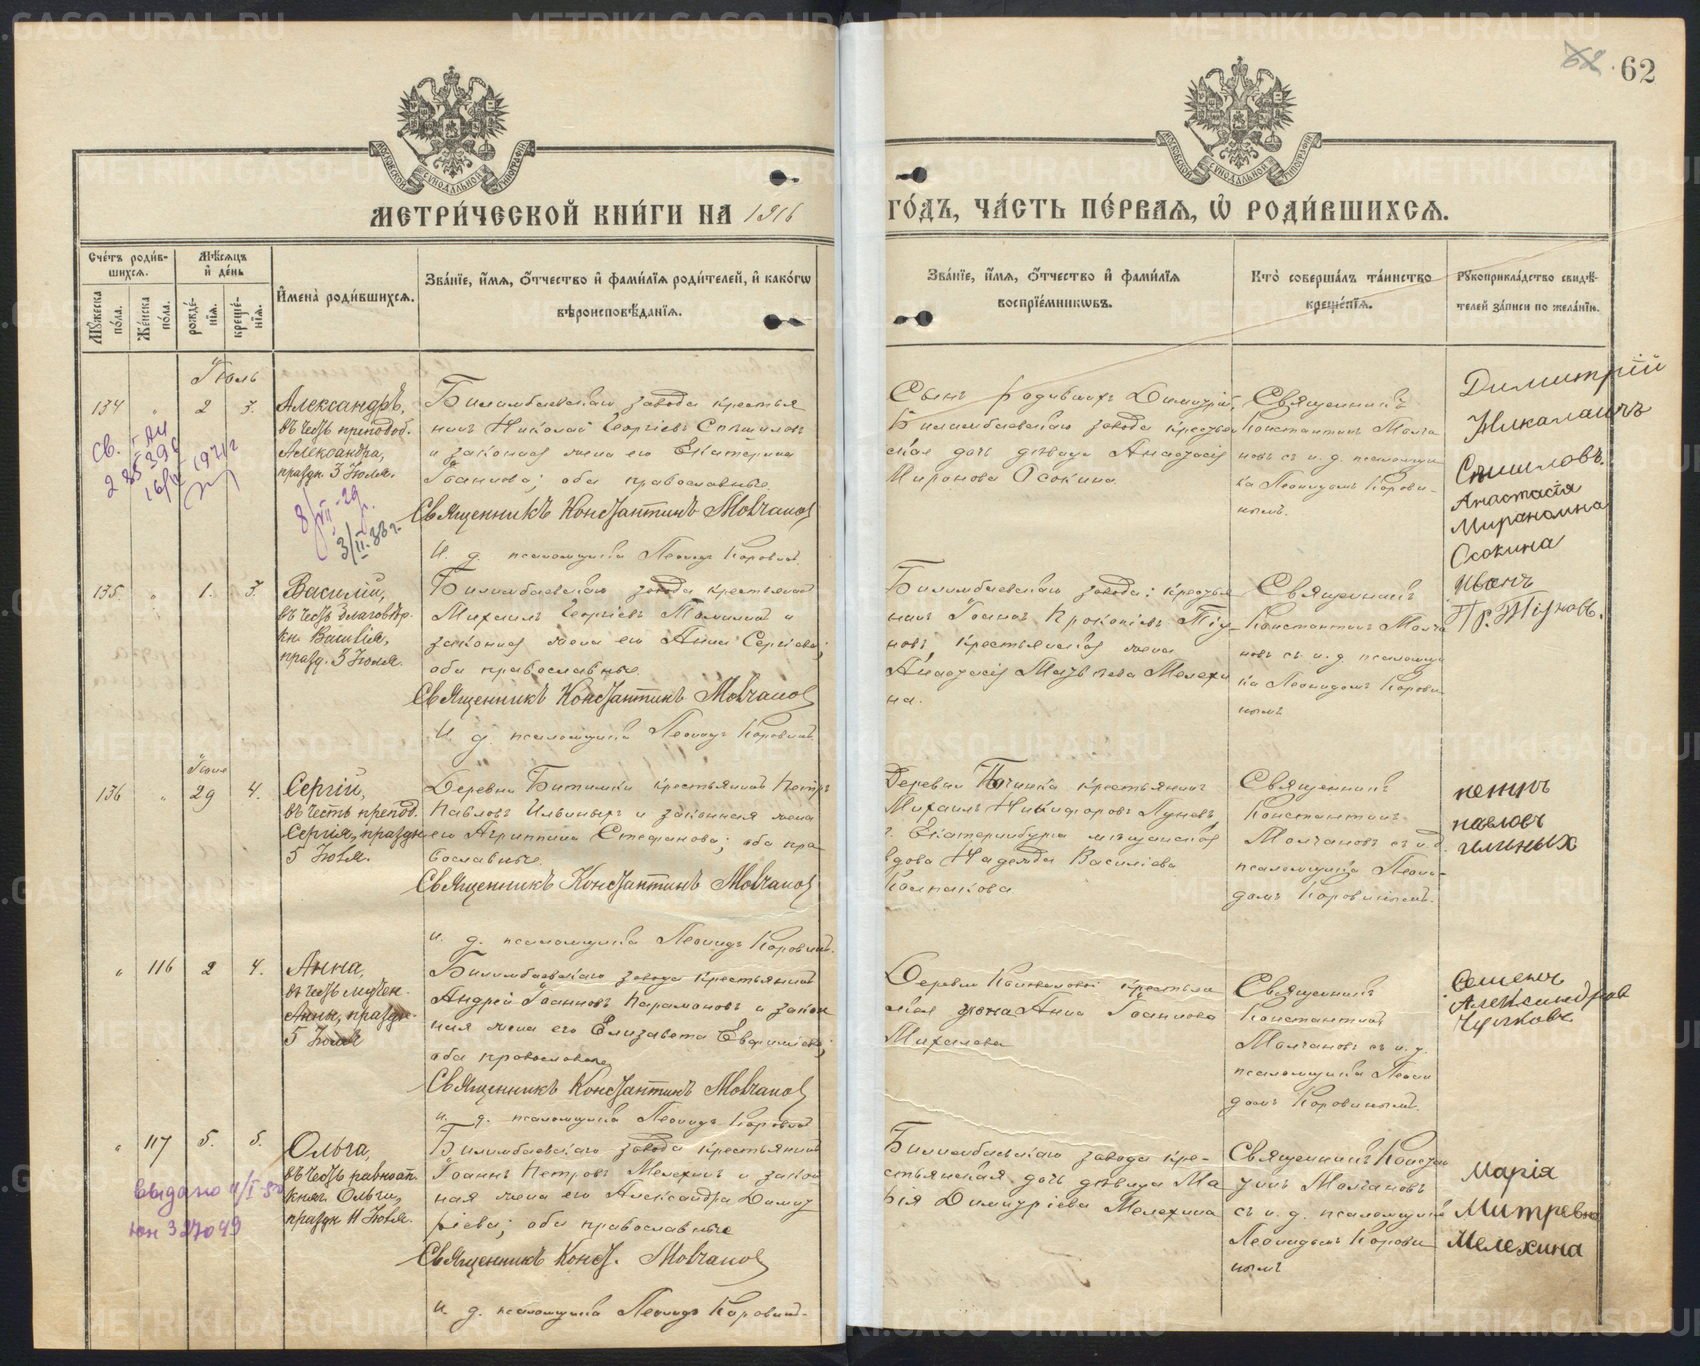 62
МЕТРИ́ЧЕСКОЙ КНИ́ГИ НА 1916
ГО́ДЪ, ЧА́СТЬ ПЕ́РВАЯ, Ѡ РОДИ́ВШИХСЯ.
Сче́тъ роди́в-
шихся.
Мѣсяцъ
и҆ де́нь
И҆мена̀ роди́вшихся.
Зва́нїе, и҆́мя, ѻ҆́тчество и҆ фами́лїя роди́телей, и҆ како́гѡ
вѣроисповѣ́данїя.
Мꙋ́жеска по́ла.
Же́нска по́ла.
рожде́нїя.
креще́нїя.
Зва́нїе, и҆́мя, ѻ҆́тчество и҆ фами́лїя
воспрїе́мникѡвъ.
Кто̀ соверша́лъ та́инство
креще́нїя.
Рꙋкоприкла́дство свидѣ́-
телей за́писи по жела́нїю.
Іюль
134 " 2 3.
Александръ,
въ честь преподоб.
Александра,
праздн. 3 Іюля.
Билимбаевскаго завода крестья
нинъ Николай Георгіевъ Спѣшиловъ
и законная жена его Екатерина
Іоаннова; оба православные
Священникъ Константинъ Молчановъ
И. д. псаломщика Леонидъ Коровинъ
Сынъ родившихъ Димитрій,
Билимбаевскаго завода крестьян
ская дочь дѣвица Анастасія
Миронова Осокина
Священникъ
Константинъ Молча
новъ съ и. д. псаломщи
ка Леонидомъ Корови-
нымъ.
Димитрій
Николаичъ
Спѣшиловъ.
Анастасія
Мироновна
Осокина
св. I-АИ
285396
16/IV 1971 г
8/VII-29 г.
3/II-33 г.
135. " 1. 3.
Василій,
въ честь благовѣр.
кн. Василія,
празд. 3 Іюля.
Билимбаевскаго завода крестьянинъ
Михаилъ Георгіевъ Томилинъ и
законная жена его Анна Сергіева;
оба православные
Священникъ Константинъ Молчановъ
И. д. псаломщика Леонидъ Коровинъ
Билимбаевскаго завода: крестья
нинъ Іоаннъ Прокопіевъ Тіу
новъ, крестьянская жена
Анастасія Матвѣева Мелехи
на.
Священникъ
Константинъ Молча
новъ съ и. д. псаломщи
ка Леонидомъ Корови
нымъ
Иванъ
Пр. Тіуновъ.
Іюня
136 " 29 4.
Сергій,
въ честь препод.
Сергія, праздн.
5 Іюля.
Деревни Битимки крестьянинъ Петръ
Павловъ Ильиныхъ и законная жена
его Агриппина Стефанова; оба пра
вославные.
Священникъ Константинъ Молчановъ
И. д. псаломщика Леонидъ Коровинъ.
Деревни крестьянинъ
Михаилъ Никифоровъ Луневъ
г. Екатеринбурга мѣщанская
вдова Надежда Василіева
Колпакова
Священникъ
Константинъ
Молчановъ съ и. д.
псаломщика Леони-
домъ Коровинымъ.
петръ
павловъ
илиныхъ
" 116 2 4.
Анна,
въ честь мучен.
Анны, праздн.
5 Іюля
Билимбаевскаго завода крестьянинъ
Андрей Іоанновъ Парамоновъ и закон
ная жена его Елизавета Евфиміева;
оба православные
Священникъ Константинъ Молчановъ
и. д. псаломщика Леонидъ Коровинъ
Деревни крестьян
ская жена Анна Іоаннова
Михалева
Священникъ
Константинъ
Молчановъ съ и. д.
псаломщика Леони
домъ Коровинымъ.
Семенъ
Александров
Чулковъ
" 117 5. 5.
Ольга,
въ честь равноап.
княг. Ольги,
праздн 11 Іюля.
Билимбаевскаго завода крестьянинъ
Іоаннъ Петровъ Мелехинъ и закон
ная жена его Александра Димит
ріева; оба православные
Священникъ Конст. Молчановъ
И. д. псаломщика Леонидъ Коровинъ.
Билимбаевскаго завода кре-
стьянская дочь дѣвица Ма
рія Димитріева Мелехина
Священникъ Констан
тинъ Молчановъ
съ и. д. псаломщика
Леонидомъ Корови
нымъ
Марія
Митревна
Мелехина
выдано
юн 327049
METRIKI.GASO-URAL.RU